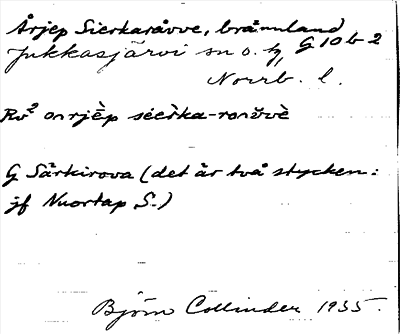 Årjep Sierkaråvve, brännland
Jukkasjärvi sn o. tg, G 10 b 2
Norrb. l.
Rv² onrjèp sèerka-ronŭvè
G Särkirova (det är två stycken:
jf Nuortap S.)
Björn Collinder 1935.